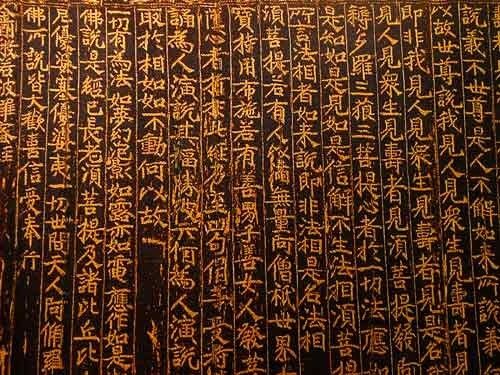 説義不世尊是人不解如来所説義
以故世尊説我見人見衆生見壽者見
即非我見人見衆生見壽者見是名
見人見衆生見壽者見須菩提發阿
耨多羅三藐三菩提心者於一切法應如
是知如是見如是信解不生法相須菩提
所言法相者如来説即非法相是名法相
須菩提若有人以滿無量阿僧祇世界
寶持用布施若有善男子善女人發菩
薩心者持於此經乃至四句偈等受持
誦為人演説其福勝彼云何為人演説
取於相如如不動何以故
一切有為法如夢幻泡影如露亦如電應作如是
佛説是經已長老須菩提及諸比丘比
尼優婆塞優婆夷一切世間天人阿脩羅
佛所説皆大歡喜信受奉行
金剛般若波羅蜜